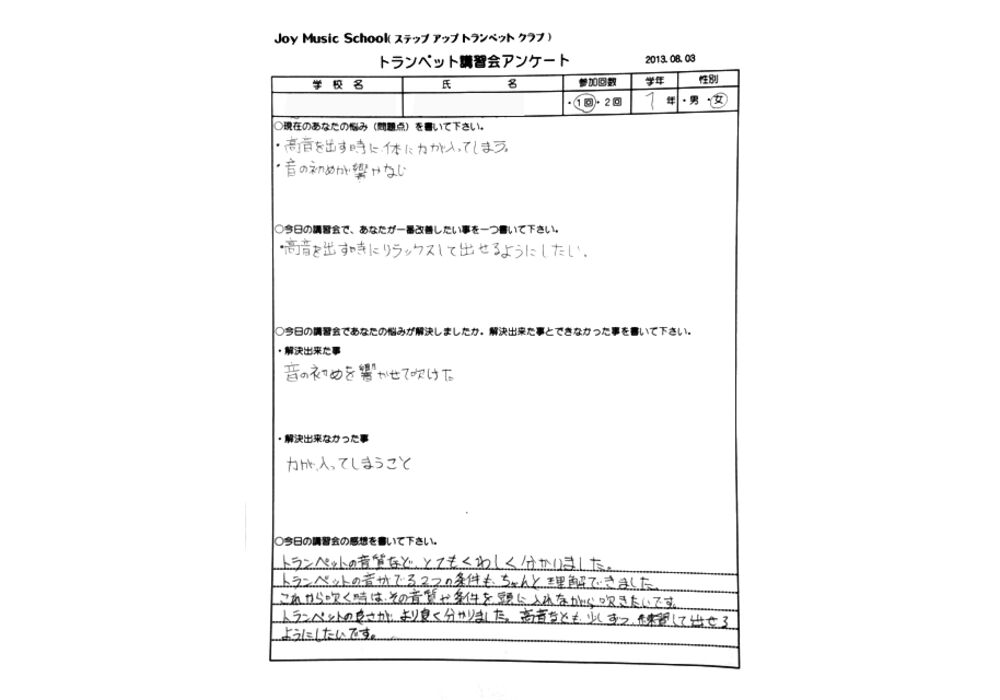 Joy Music School(ステップ アップ トランペット クラブ)
トランペット講習会アンケート 2013.08.03
学校名 氏名 参加回数 学年 性別
・1回・2回 1年 ・男・女
○現在のあなたの悩み(問題点)を書いて下さい。
・高音を出す時に体に力が入ってしまう。
・音の初めが響かない
○今日の講習会で、あなたが一番改善したい事を一つ書いて下さい。
・高音を出す時にリラックスして出せるようにしたい。
○今日の講習会であなたの悩みが解決しましたか。解決出来た事とできなかった事を書いて下さい。
・解決出来た事
音の初めを響かせて吹けた
・解決出来なかった事
力が入ってしまうこと
○今日の講習会の感想を書いて下さい。
トランペットの音質など、とてもくわしく分かりました。
トランペットの音がでる2つの条件も、ちゃんと理解できました。
これから吹く時は、その音質や条件を頭に入れながら吹きたいです。
トランペットの良さが、より良く分かりました。高音なども、少しずつ練習して出せる
ようにしたいです。